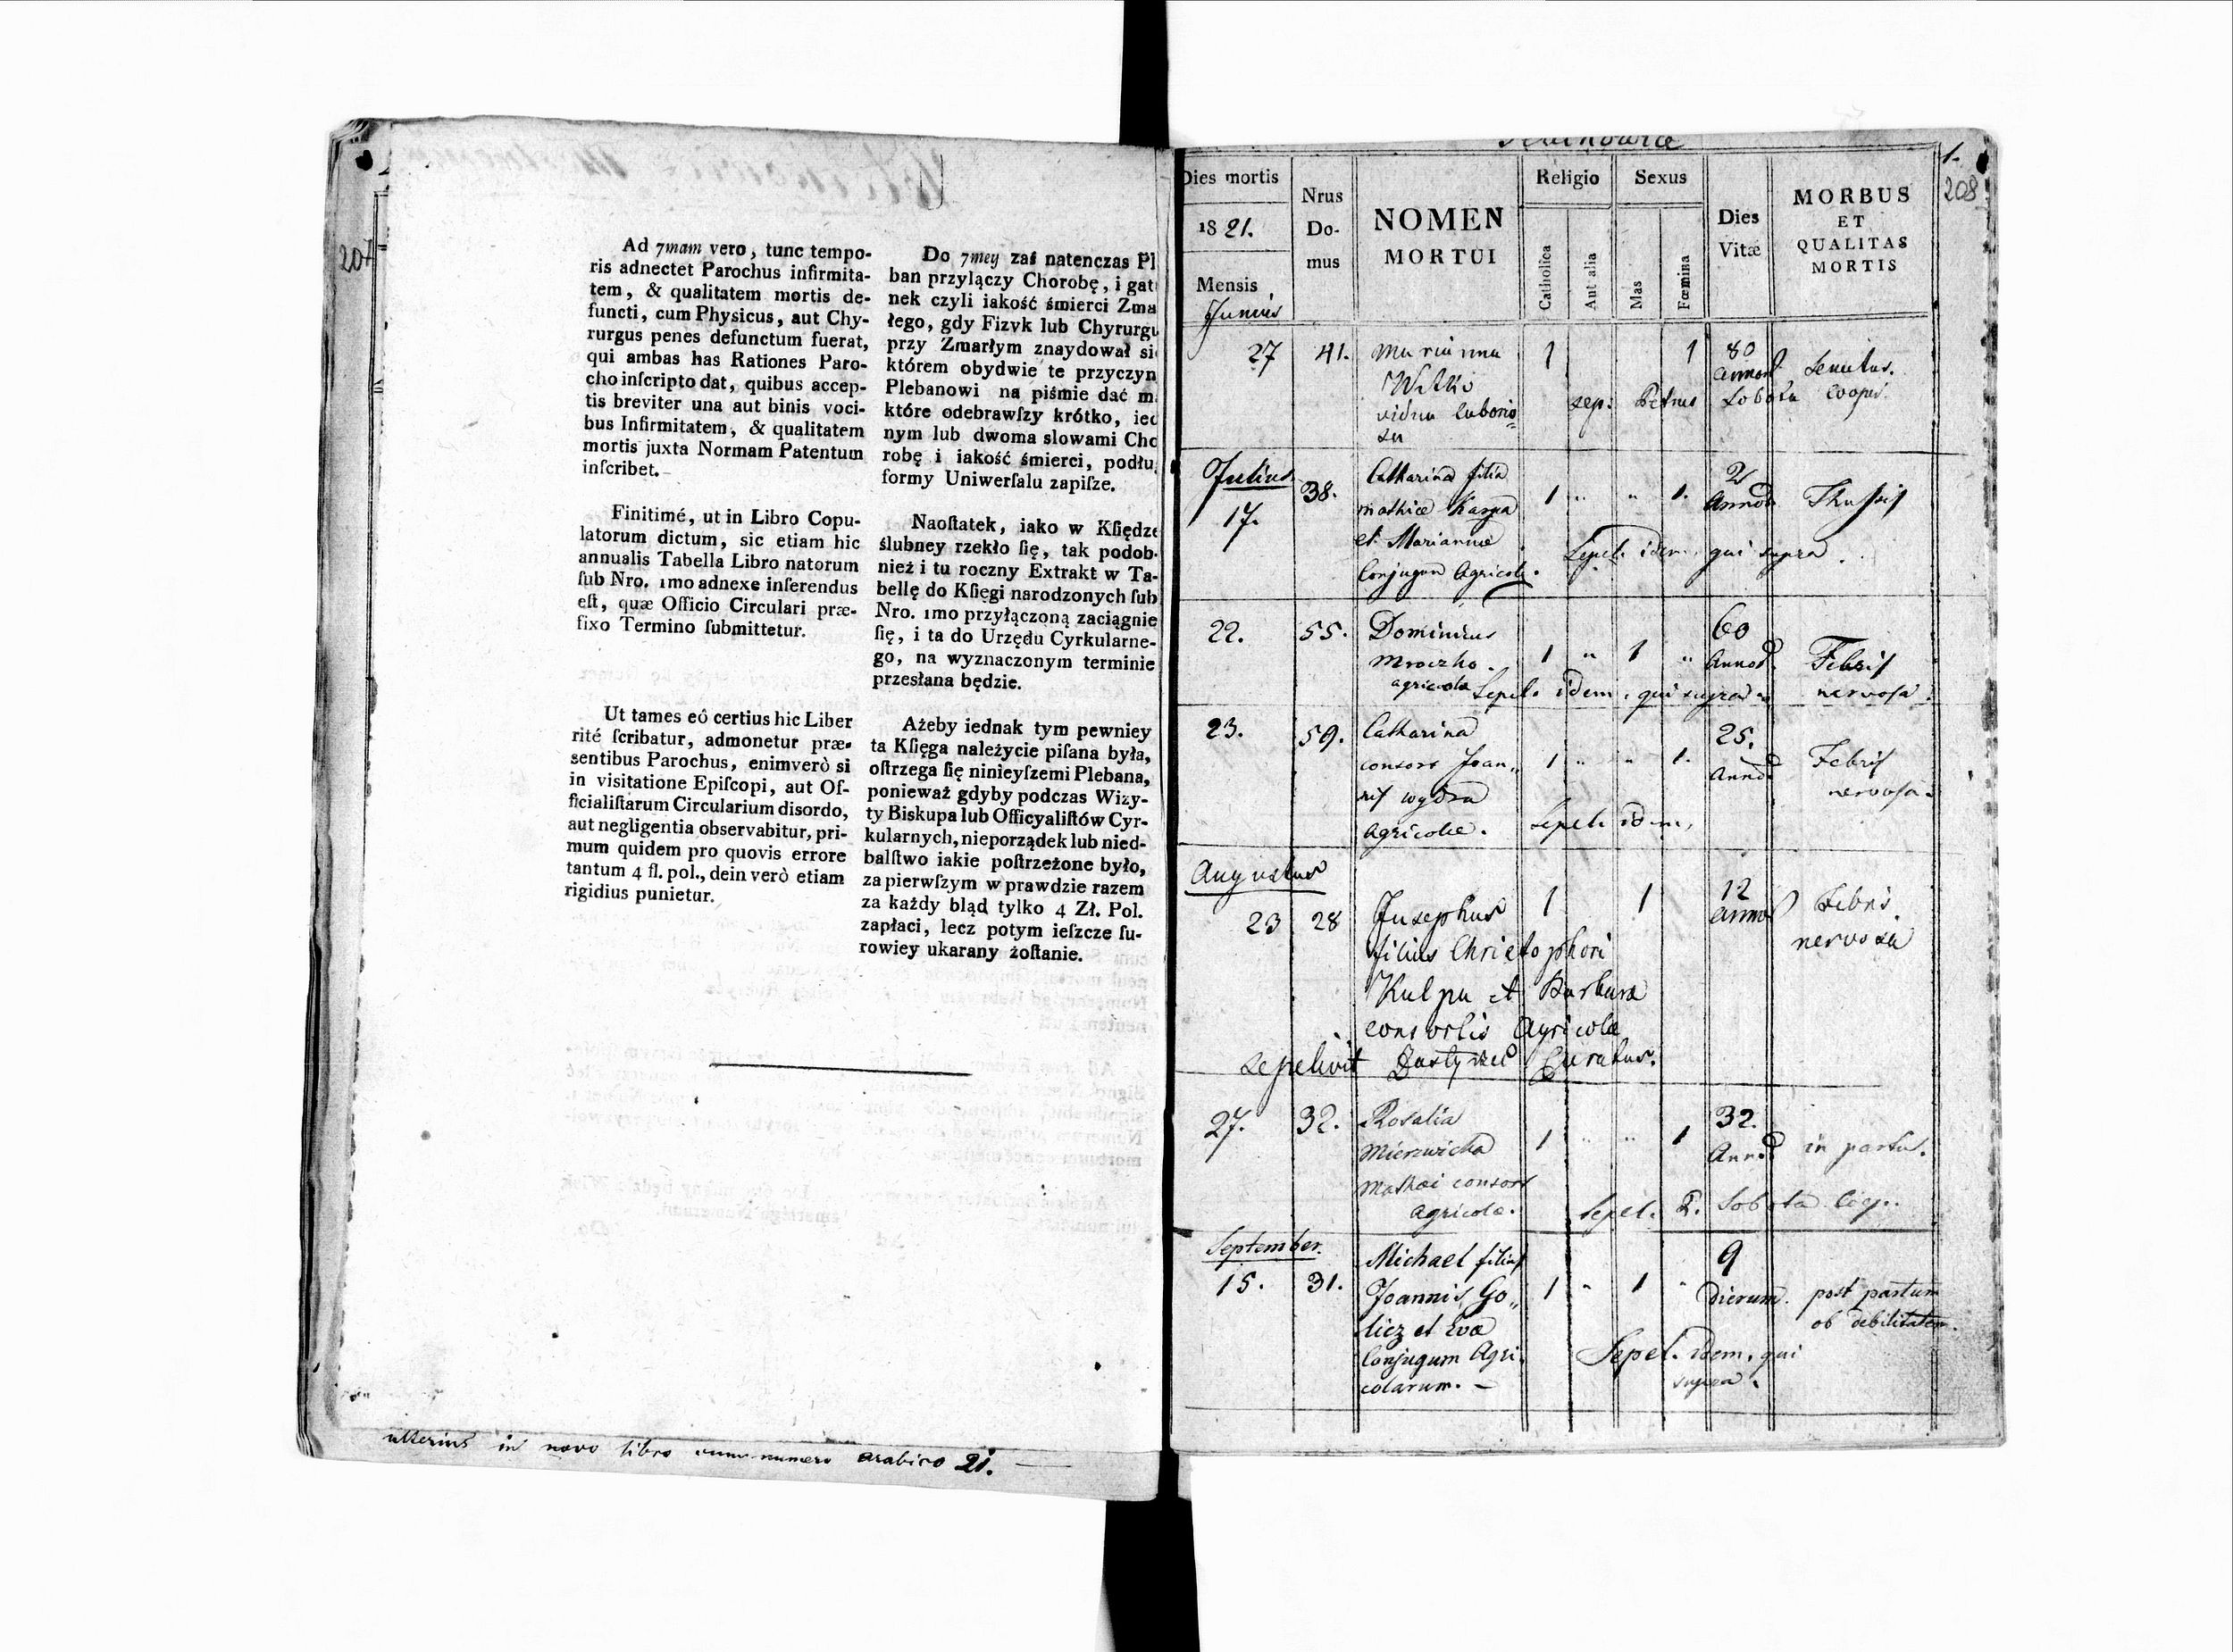 207
Ad 7mam vero, tunc tempo-
ris adnectet Parochus infirmita-
tem, & qualitatem mortis de-
functi, cum Physicus, aut Chy-
rurgus penes defunctum fuerat,
qui ambas has Rationes Paro-
cho inſcripto dat, quibus accep-
tis breviter una aut binis voci-
bus Infirmitatem, & qualitatem
mortis juxta Normam Patentum
inſcribet.
Finitimé, ut in Libro Copu-
latorum dictum, sic etiam hic
annualis Tabella Libro natorum
ſub Nro. 1mo adnexe inferendus
eſt, quæ Officio Circulari præ-
fixo Termino ſubmittetur.
Ut tames eô certius hic Liber
rité ſcribatur, admonetur præ-
sentibus Parochus, enimverò si
in visitatione Epiſcopi, aut Of-
ficialiſtarum Circularium disordo,
aut negligentia observabitur, pri-
mum quidem pro quovis errore
tantum 4 fl. pol., dein verò etiam
rigidius punietur.
Do 7mey zaś natenczas Pl
ban przyłączy Chorobę, i gat
nek czyli iakość śmierci Zma
łego, gdy Fizyk lub Chyrurgu
przy Zmarłym znaydował si
którem obydwie te przyczyn
Plebanowi na piśmie dać m
które odebrawſzy krótko, ied
nym lub dwoma slowami Cho
robę i iakość śmierci, podłu
formy Uniwerſalu zapiſze.
Naoſtatek, iako w Kſiędze
ślubney rzekło ſię, tak podob-
nież i tu roczny Extrakt w Ta-
bellę do Kſięgi narodzonych ſub
Nro. 1mo przyłączoną zaciągnie
ſię, i ta do Urzędu Cyrkularne-
go, na wyznaczonym terminie
przesłana będzie.
Ażeby iednak tym pewniey
ta Kſięga należycie piſana była,
oſtrzega ſię ninieyſzemi Plebana,
ponieważ gdyby podczas Wizy-
ty Biskupa lub Officyaliſtów Cyr-
kularnych, nieporządek lub nied-
balſtwo iakie poſtrzeżone było,
za pierwſzym w prawdzie razem
za każdy bląd tylko 4 Zł. Pol.
zapłaci, lecz potym ieſzcze ſu-
rowiey ukarany żoſtanie.
ulterius in novo libro cum numero arabico 21.
1.
208
Dies mortis
1821.
Mensis
Junius
Nrus
Do-
mus
NOMEN
MORTUI
Religio
Catholica
Aut alia
Sexus
Mas
Fœmina
Dies
Vitæ
MORBUS
ET
QUALITAS
MORTIS
27 41. Marianna 1 1 80
Witko annor Senectus.
vidua laborio= sep: Petrus Sobota Coopr.
sa
Julius Catharina filia 2
17. 38. mathiæ Kaspa 1 " " 1. Annor. Thussis
et Mariannæ Sepel. idem qui supra
Conjugum Agricol.
22. 55. Dominicus 60
Mroczko. 1 " 1 " Annor. Febris
agricola Sepel. idem, qui supra nervosa.
23. 59. Catharina 25.
consors Joan" 1 " " 1. Annor Febris
nis wydra nervosa.
agricolæ. Sepel. idem,
Augustus
23 28 Josephus 1 1 12 Febris
filius Christophori annor nervosa
Kulpa et Barbara
consortis Agricolæ
sepelivit Curatus.
27. 32. Rosalia 32.
Mierzwicka 1 " " 1 Annor in partu.
Mathæi consors
agricolæ. Sepel. P. Sobota Cop.
September. Michael filius 9
15. 31. Joannis Go" 1 " 1 " dierum. post partum
licz et Evæ ob debilitatem.
Conjugum Agri- Sepel. idem, qui
colarum. – supra.